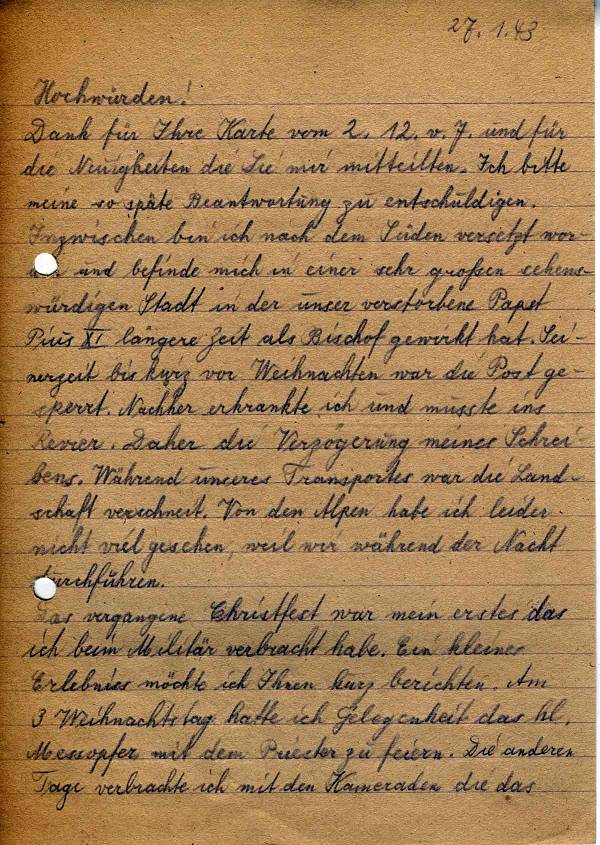 27. 1. 43
Hochwürden!
Dank für Ihre Karte vom 2. 12. v. J. und für
die Neuigkeiten die Sie mir mitteilten. Ich bitte
meine so späte Beantwortung zu entschuldigen.
Inzwischen bin ich nach dem Süden versetzt wor-
und befinde mich in einer sehr großen sehens-
würdigen Stadt in der unser verstorbene Papst
Pius XI längere Zeit als Bischof gewirkt hat. Sei-
nerzeit bis kurz vor Weihnachten war die Post ge-
sperrt. Nachher erkrankte ich und musste ins
Revier. Daher die Verzögerung meines Schrei-
bens. Während unseres Transportes war die Land-
schaft verschneit. Von den Alpen habe ich leider
nicht viel gesehen, weil wir während der Nacht
durchführen.
Das vergangene Christfest war mein erstes das
ich beim Militär verbracht habe. Ein kleines
Erlebniss möchte ich Ihnen kurz berichten. Am
3 Weihnachtstag hatte ich Gelegenheit das hl.
Messopfer mit dem Priester zu feiern. Die anderen
Tage verbrachte ich mit den Kameraden die das